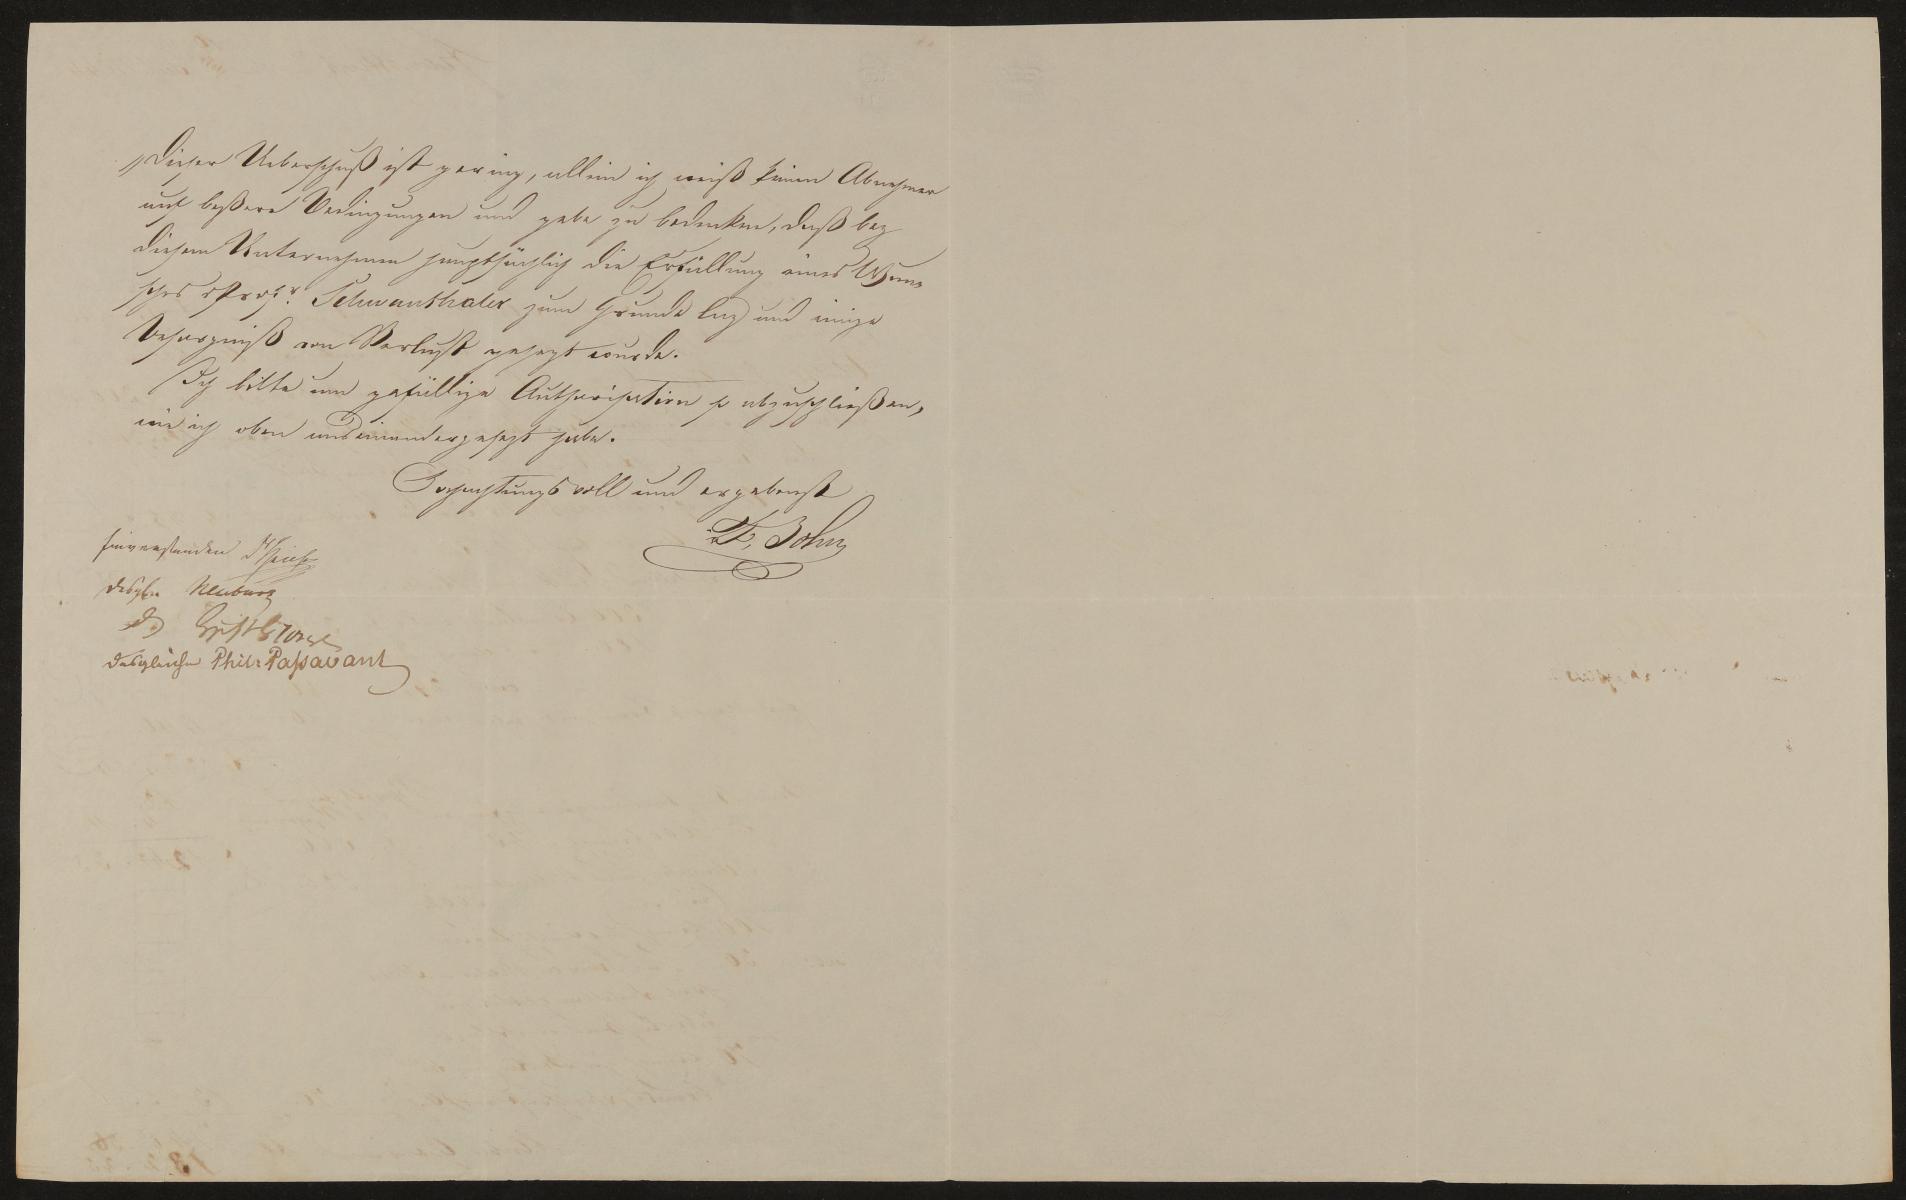 Dieser Ueberschuß ist gering, allein ich weiß keinen Abnehmer
auf beßere Bedingungen und gebe zu bedenken, daß bey
diesem Unternehmen hauptsächlich die Erfüllung eines Wun-
sches Schwanthaler zum Grunde lag und einige
Besorgniß von Verlust gehegt wurde.
Ich bitte um gefällige Authorisation so abzuschließen,
wie ich oben auseinandergesezt habe.
Hochachtungsvoll und ergebenst
Bohn
Einverstanden
desgln Neuburg
do
desgleichen Phil: Passavant